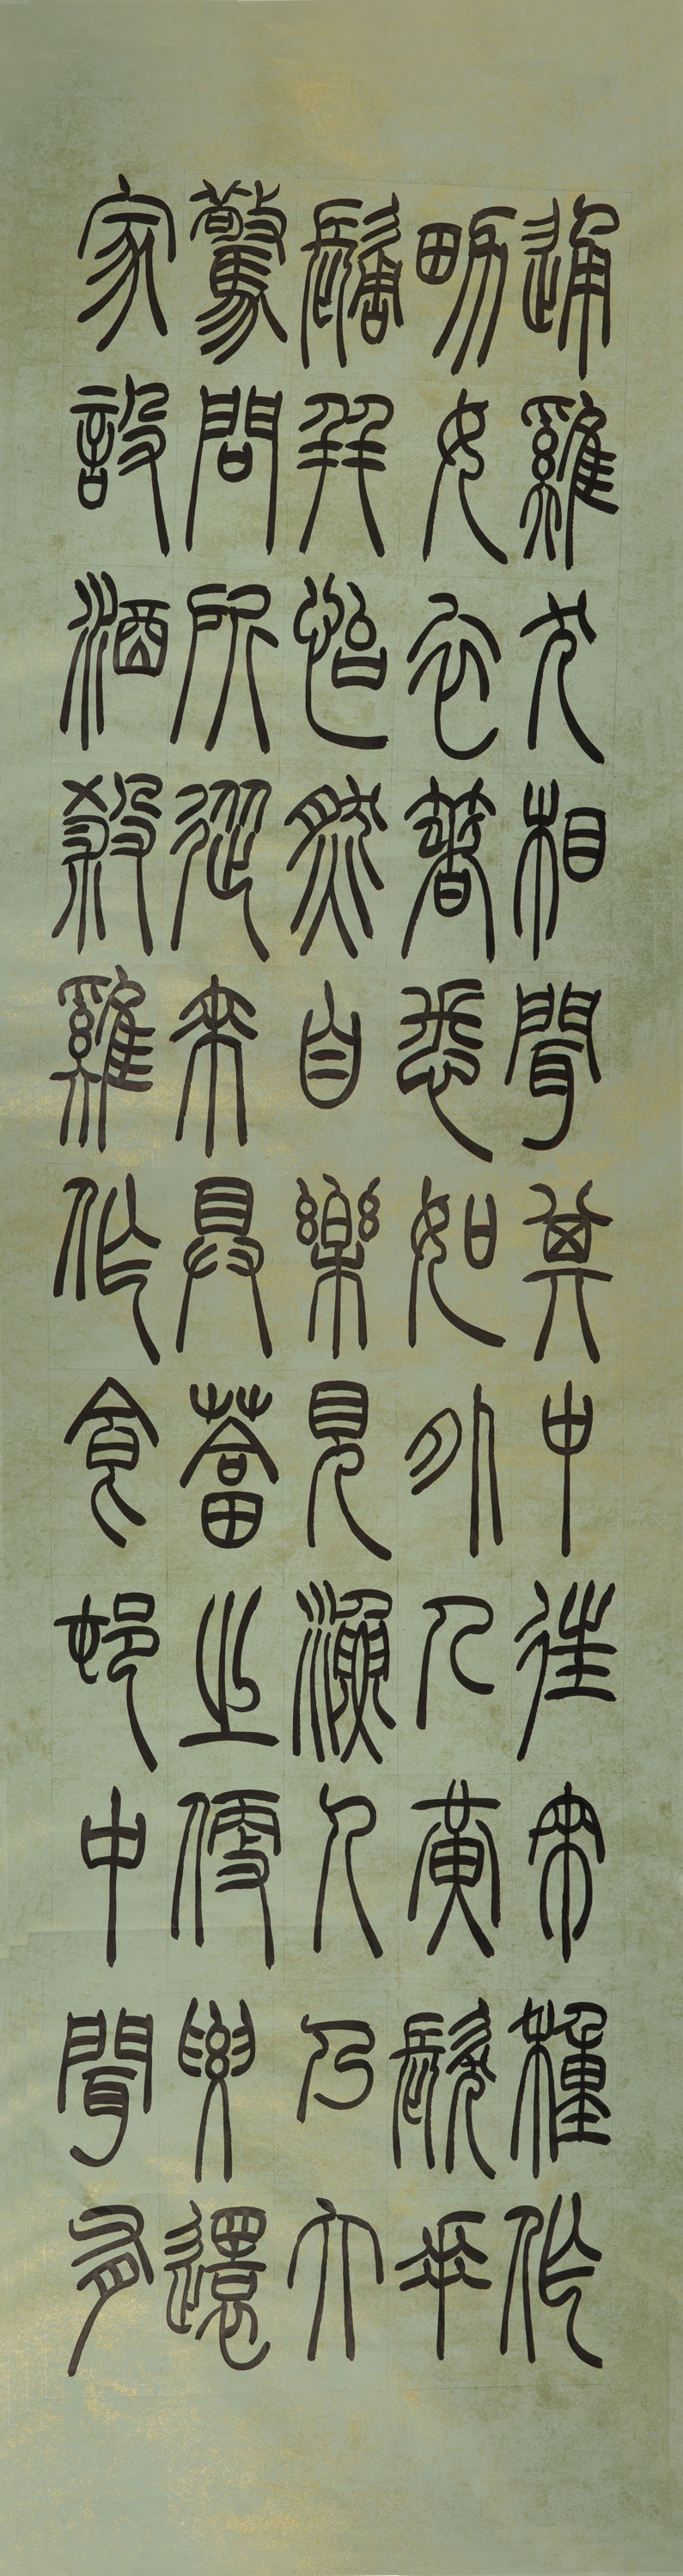 通雞犬相聞其中往來種作
男女衣著悉如外人黃髮垂
髫并怡然自樂見漁人乃大
驚問所從來具答之便要還
家設酒殺雞作食邨中聞有